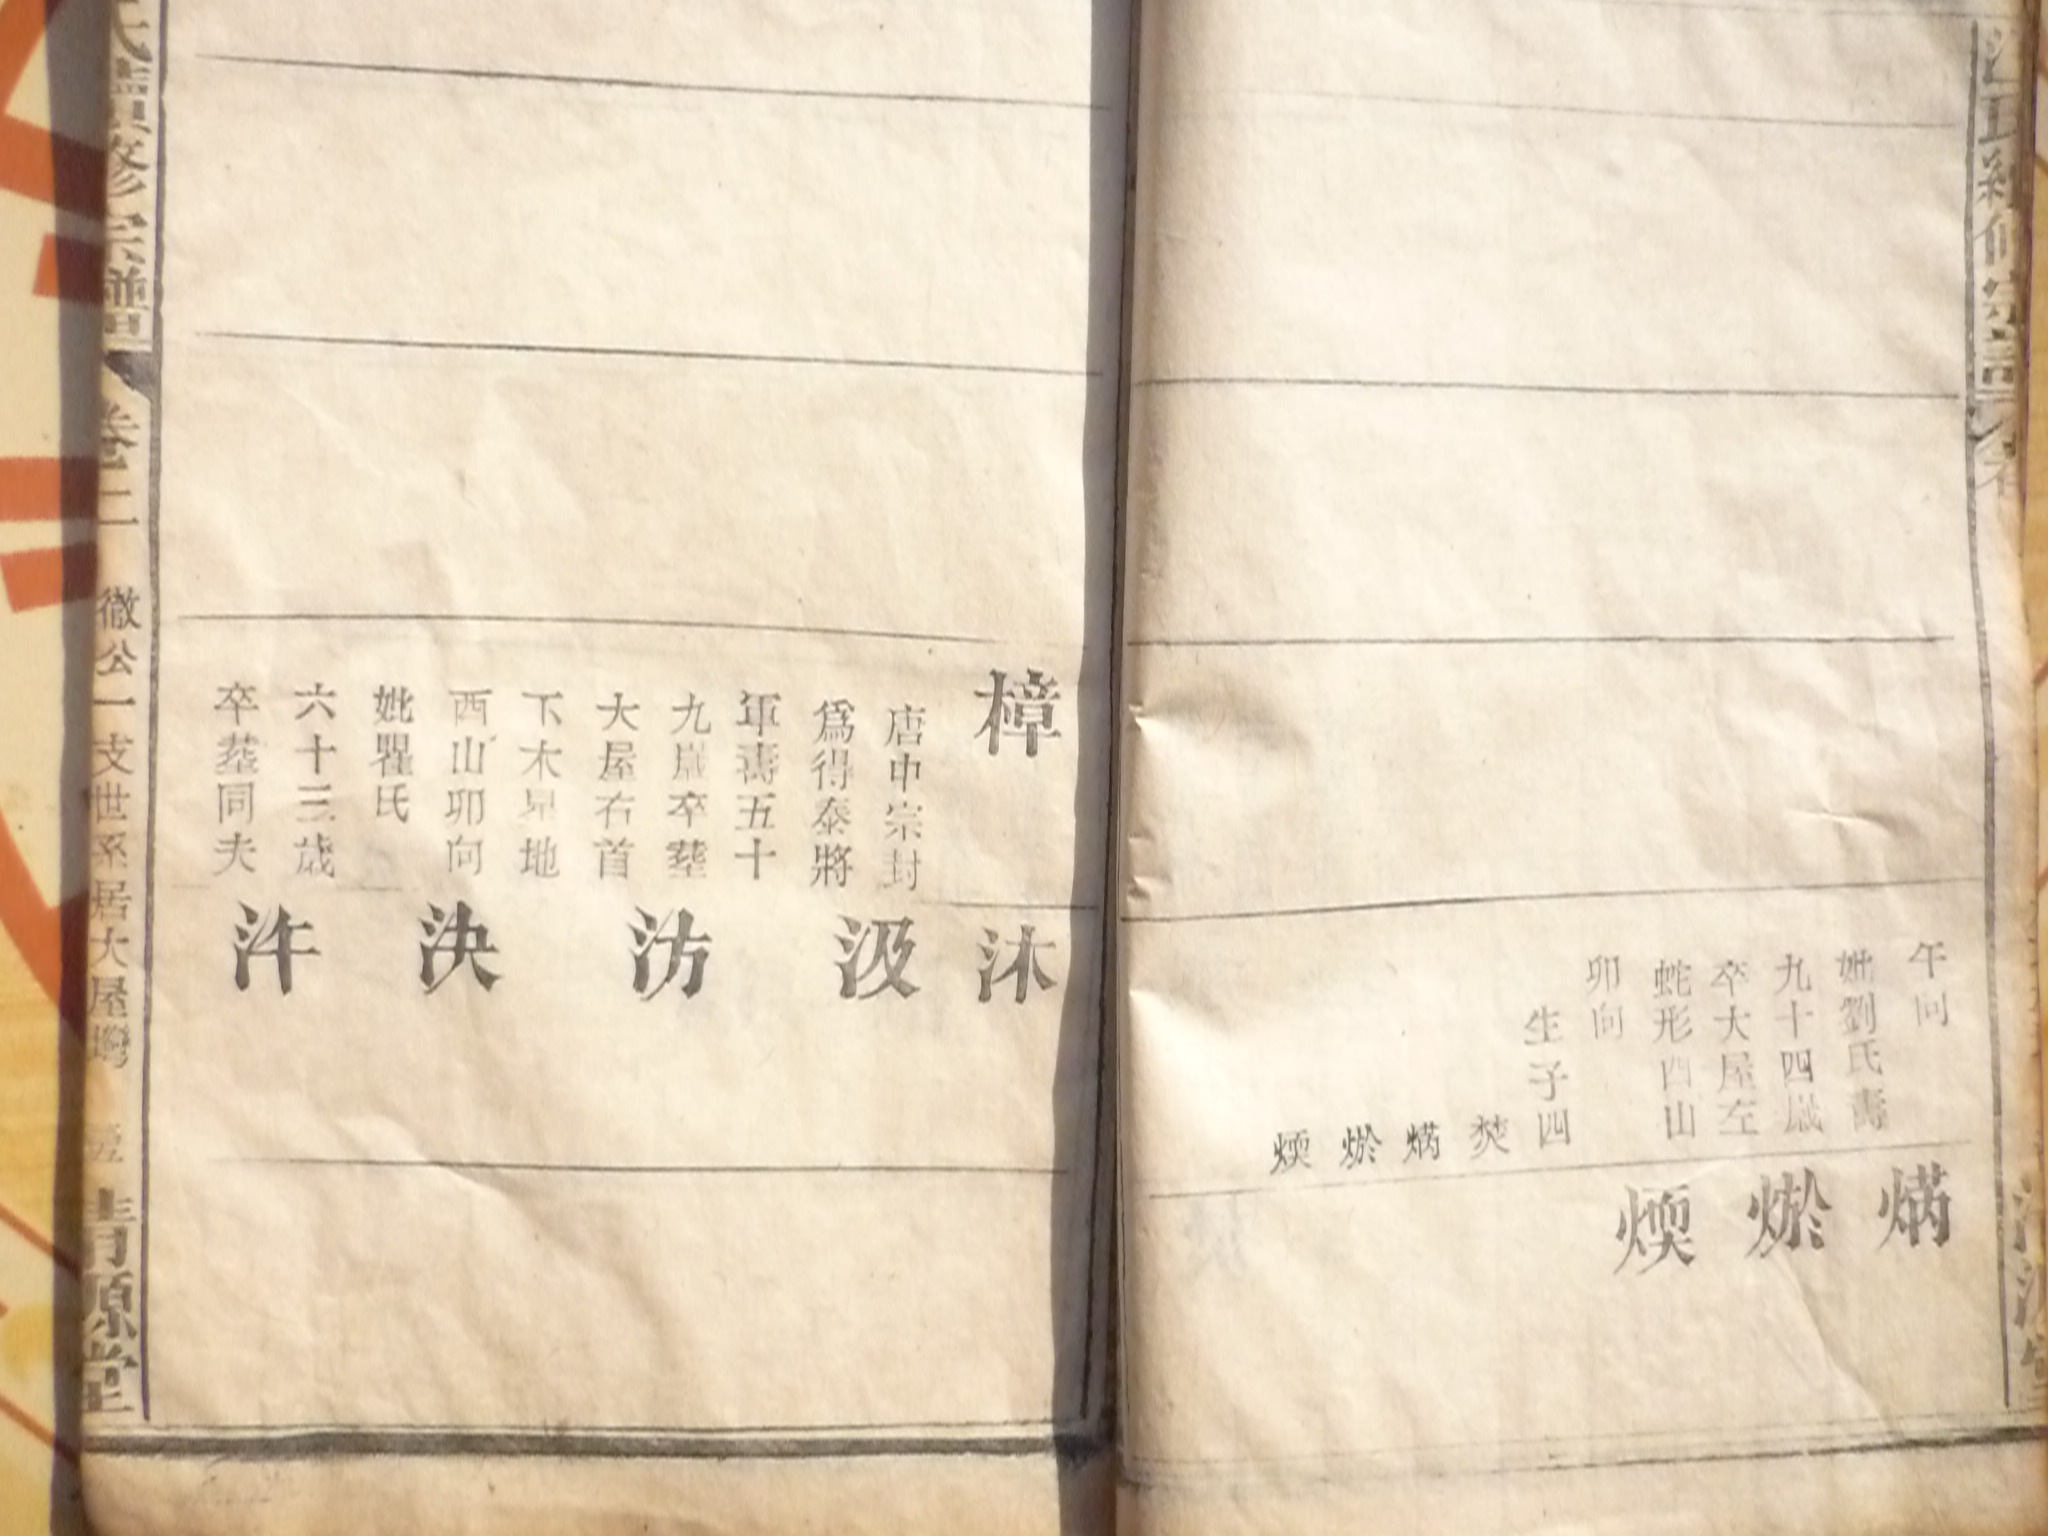 午向
妣劉氏壽
九十四歲
卒大屋左
蛇形酉山
卯向
生子四
焚
㷎
煥
煥
樟
唐中宗封
爲得泰將
軍壽五十
九歲卒塟
大屋右首
下木星地
酉山卯向
妣瞿氏
六十三歲
卒塟同夫
沐
汲
汸
決
汻
氏續修宗譜
卷二
徹公一支世系居大屋灣
青源堂